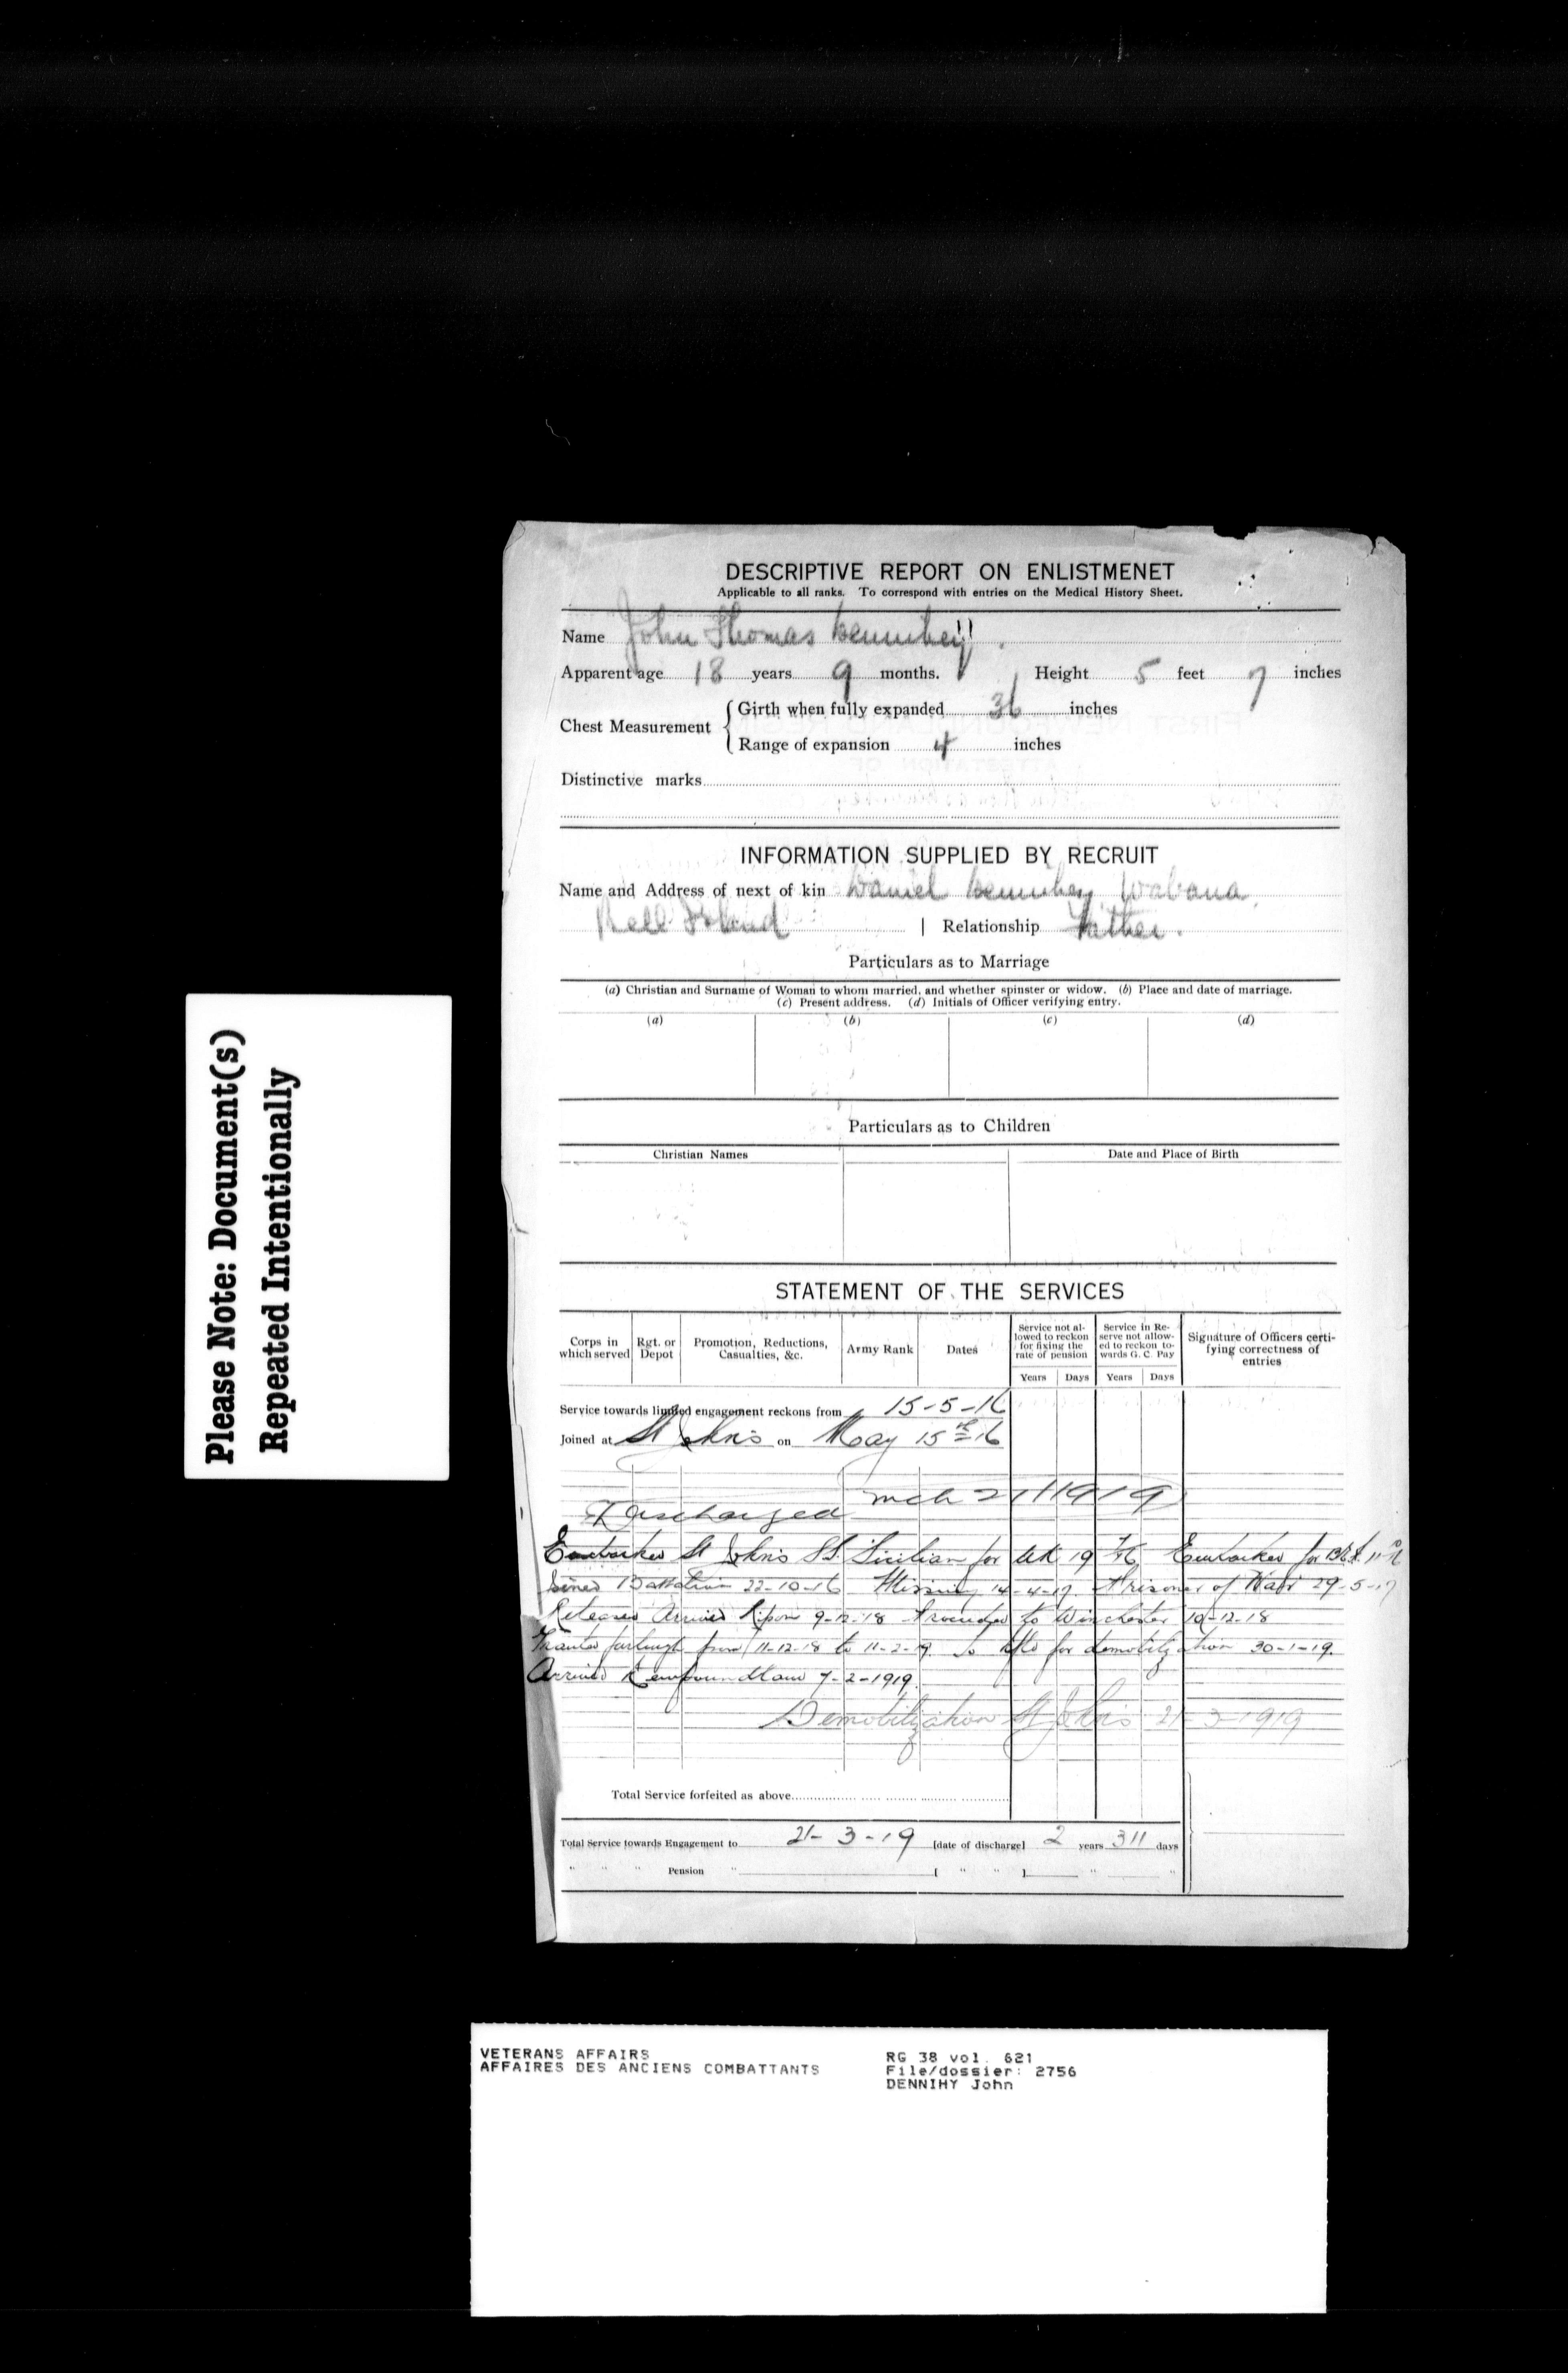 DESCRIPTIVE REPORT ON ENLISTMENET
Applicable to all ranks. To correspond with entries on the Medical History Sheet.
Name John Thomas Dennihey
Apparent age 18 years 9 months. Height 5 feet 7 inches
Chest Measurement
Girth when fully expanded 36 inches
Range of expansion 4 inches
Distinctive marks
INFORMATION SUPPLIED BY RECRUIT
Name and Address of next of kin Daniel Dennihey Wabana,
Bell Island | Relationship Father.
Particulars as to Marriage
(a) Christian and Surname of Woman to whom married, and whether spinster or widow. (b) Place and date of marriage.
(c) Present address. (d) Initials of Officer verifying entry.
(a) (b) (c) (d)
Particulars as to Children
Christian Names Date and Place of Birth
STATEMENT OF THE SERVICES
Corps in which served
Rgt. or Depot
Promotion, Reductions, Casualties, &c.
Army Rank
Dates
Service not allowed to reckon for fixing the rate of pension
Service in Reserve not allowed to reckon towards G. C. Pay
Signature of Officers certifying correctness of entries
Years Days Years Days
Service towards limited engagement reckons from 15-5-16
Joined at St John's on May 15th 16
Discharged Mch 21/1919
Embarked St John's SS. Sicilian for UK 19 Embarked for
Joined Battalion 22-10-16 Missing 14-4-17. Prisoner of War 29-5-17
Released Arrived Ripon 9-12-18 Proceeded to Winchester 10-12-18
Granted furlough from 11-12-18 to 11-2-19. To Nfld for demobilization 30-1-19.
Arrived Newfoundland 7-2-1919.
Demobilization St John's 21-3-1919
Total Service forfeited as above
Total Service towards Engagement to 21-3-19 [date of discharge] 2 years 311 days
" " " Pension " [ " " ] " "
Please Note: Document(s)
Repeated Intentionally
VETERANS AFFAIRS
AFFAIRES DES ANCIENS COMBATTANTS
RG 38 vol. 621
File/dossier: 2756
DENNIHY John